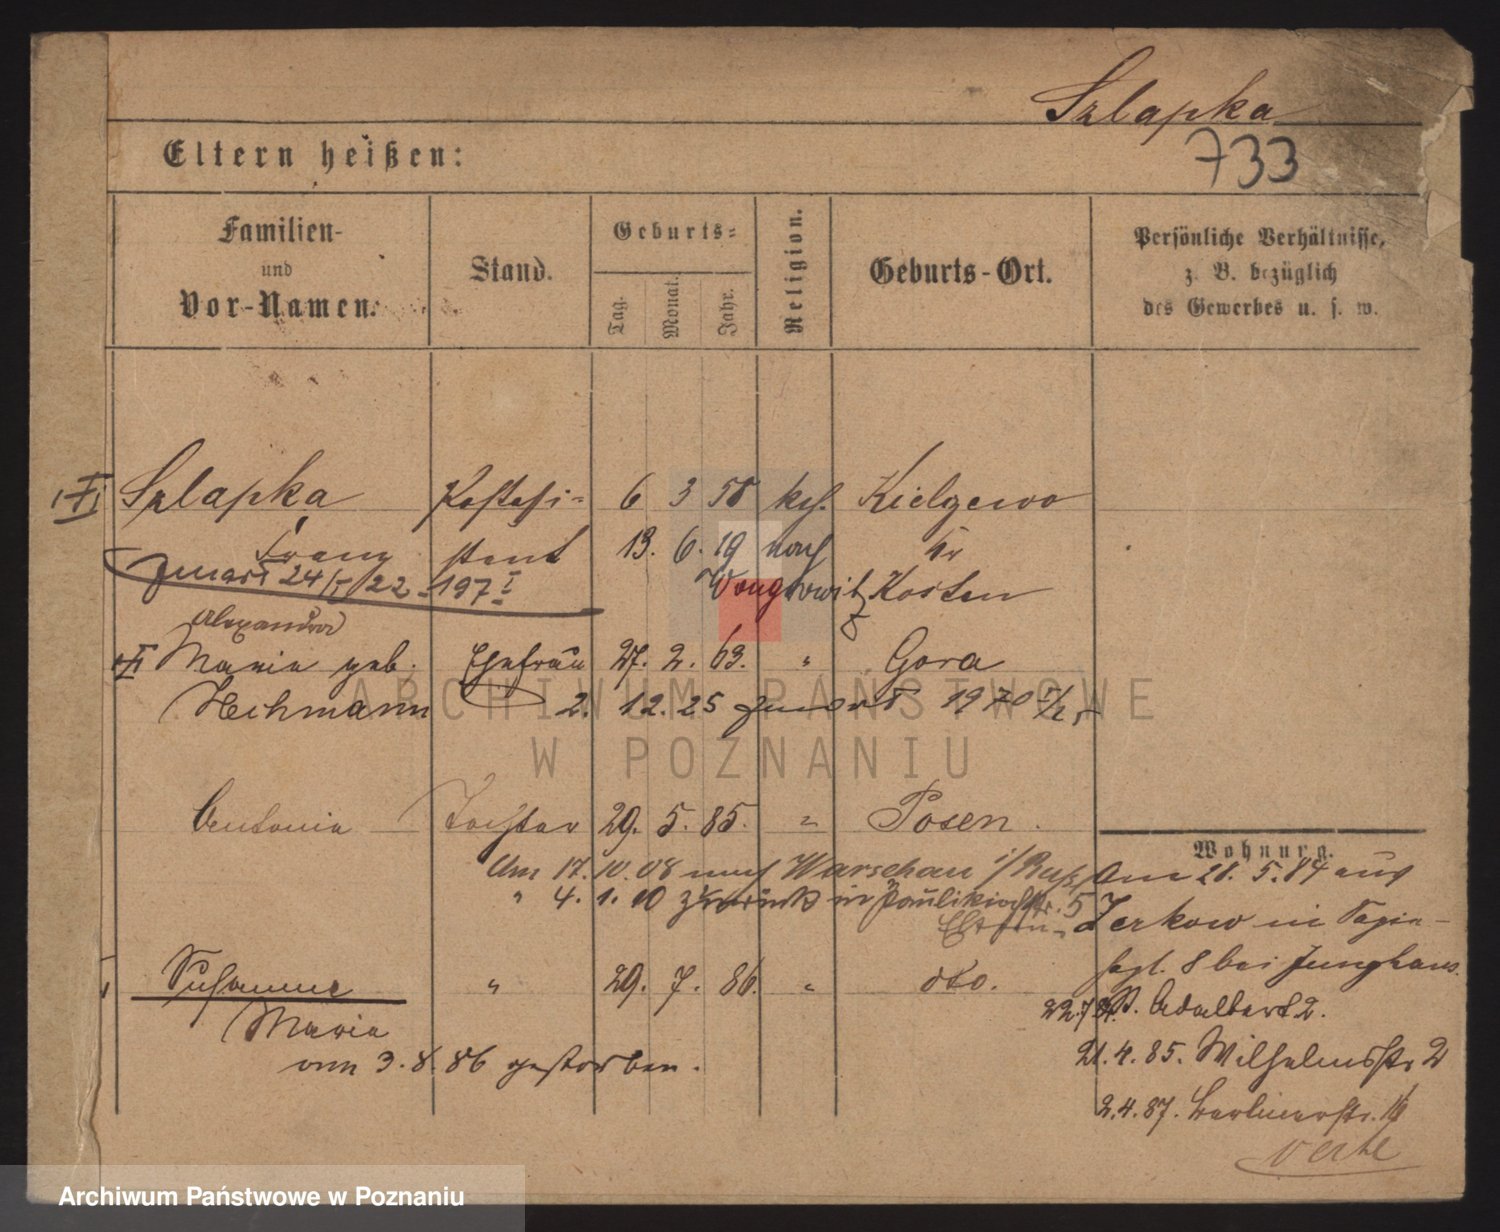 Szlapka
733
Eltern heißen:
Familien-
und
Vor-Namen.
Stand.
Geburts-
Tag.
Monat.
Jahr.
Religion.
Geburts-Ort.
Persönliche Verhältnisse,
z. B. bezüglich
des Gewerbes u. s. w.
Szlapka Postassi- 6 3 58 kath. Kielczewo
Franz stent 13. 6. 19 nach Kr
24/I 22 - 197 I Wongrowitz Kosten
Alexandra
Maria geb. Ehefrau 27. 2. 63. " Gora
Hechmann 2. 12. 25
Antonia Tochter 29. 5. 85. " Posen.
Am 17. 10. 08 nach Warschau i/Russl
" 4. 1. 10 zurück in Paulikirchstr. 5
Eltern
Susanne " 29. 7. 86. " dto.
Maria
am 3. 8. 86 gestorben.
Wohnung.
Am 21. 5. 84 aus
Zerkow in
8 bei Junghans.
22.7.84. St. Adalbert 2.
21. 4. 85. Wilhelmstr 2
2. 4. 87. Berlinerstr. 16
verte
ARCHIWUM PAŃSTWOWE
W POZNANIU
Archiwum Państwowe w Poznaniu